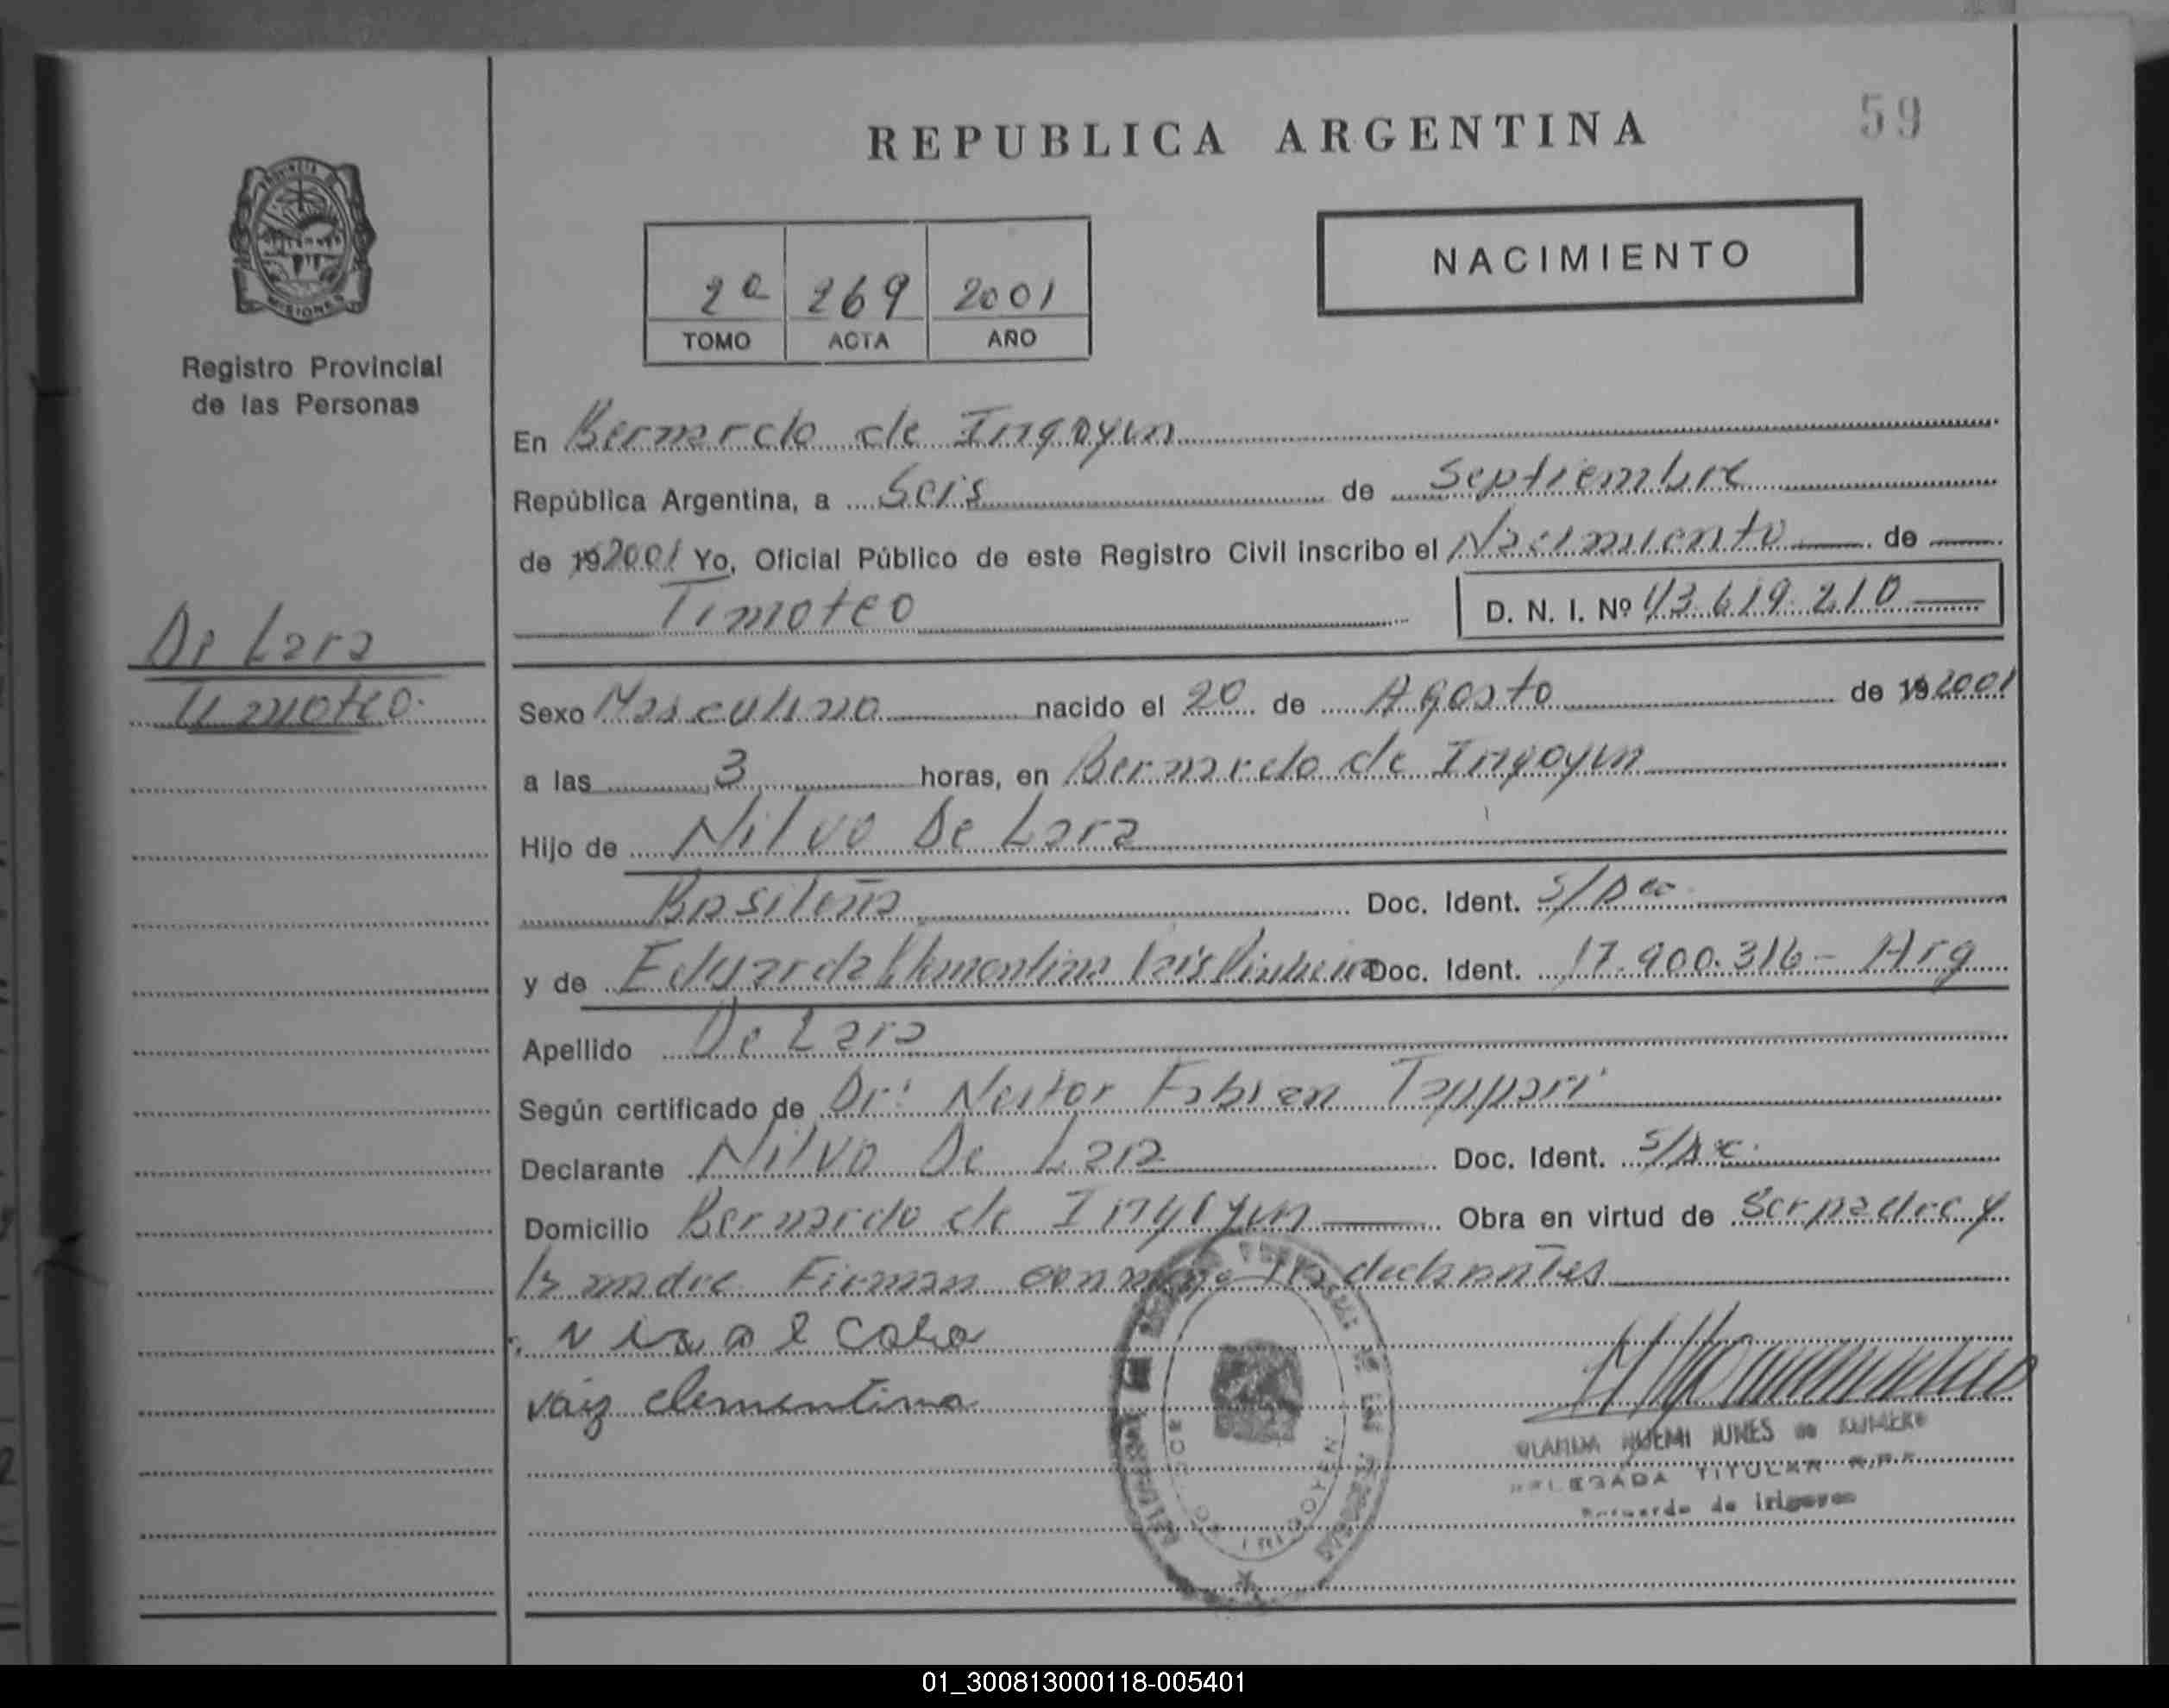 REPUBLICA ARGENTINA
59
PROVINCIA DE
MISIONES
Registro Provincial
de las Personas
NACIMIENTO
2º 269 2001
TOMO ACTA AÑO
En Bernardo de Irigoyen
República Argentina, a Seis de Septiembre
de 192001 Yo, Oficial Público de este Registro Civil inscribo el Nacimiento de
Timoteo D. N. I. Nº 43.619.210
De Lara
Timoteo.
Sexo Masculino nacido el 20 de Agosto de 192001
a las 3 horas, en Bernardo de Irigoyen
Hijo de Nilvo De Lara
Brasileña Doc. Ident. S/Doc
y de Eduarda Clementina Doc. Ident. 17.900.316 - Arg
Apellido De Lara
Según certificado de Dr: Nestor Fabian Tappari
Declarante Nilvo De Lara Doc. Ident. S/Doc.
Domicilio Bernardo de Irigoyen Obra en virtud de Ser padre y
la madre Firman conmigo los declarantes
vaiz clementina
BDO. DE IRIGOYEN
DELEGADA TITULAR
Bernardo de Irigoyen
01_300813000118-005401